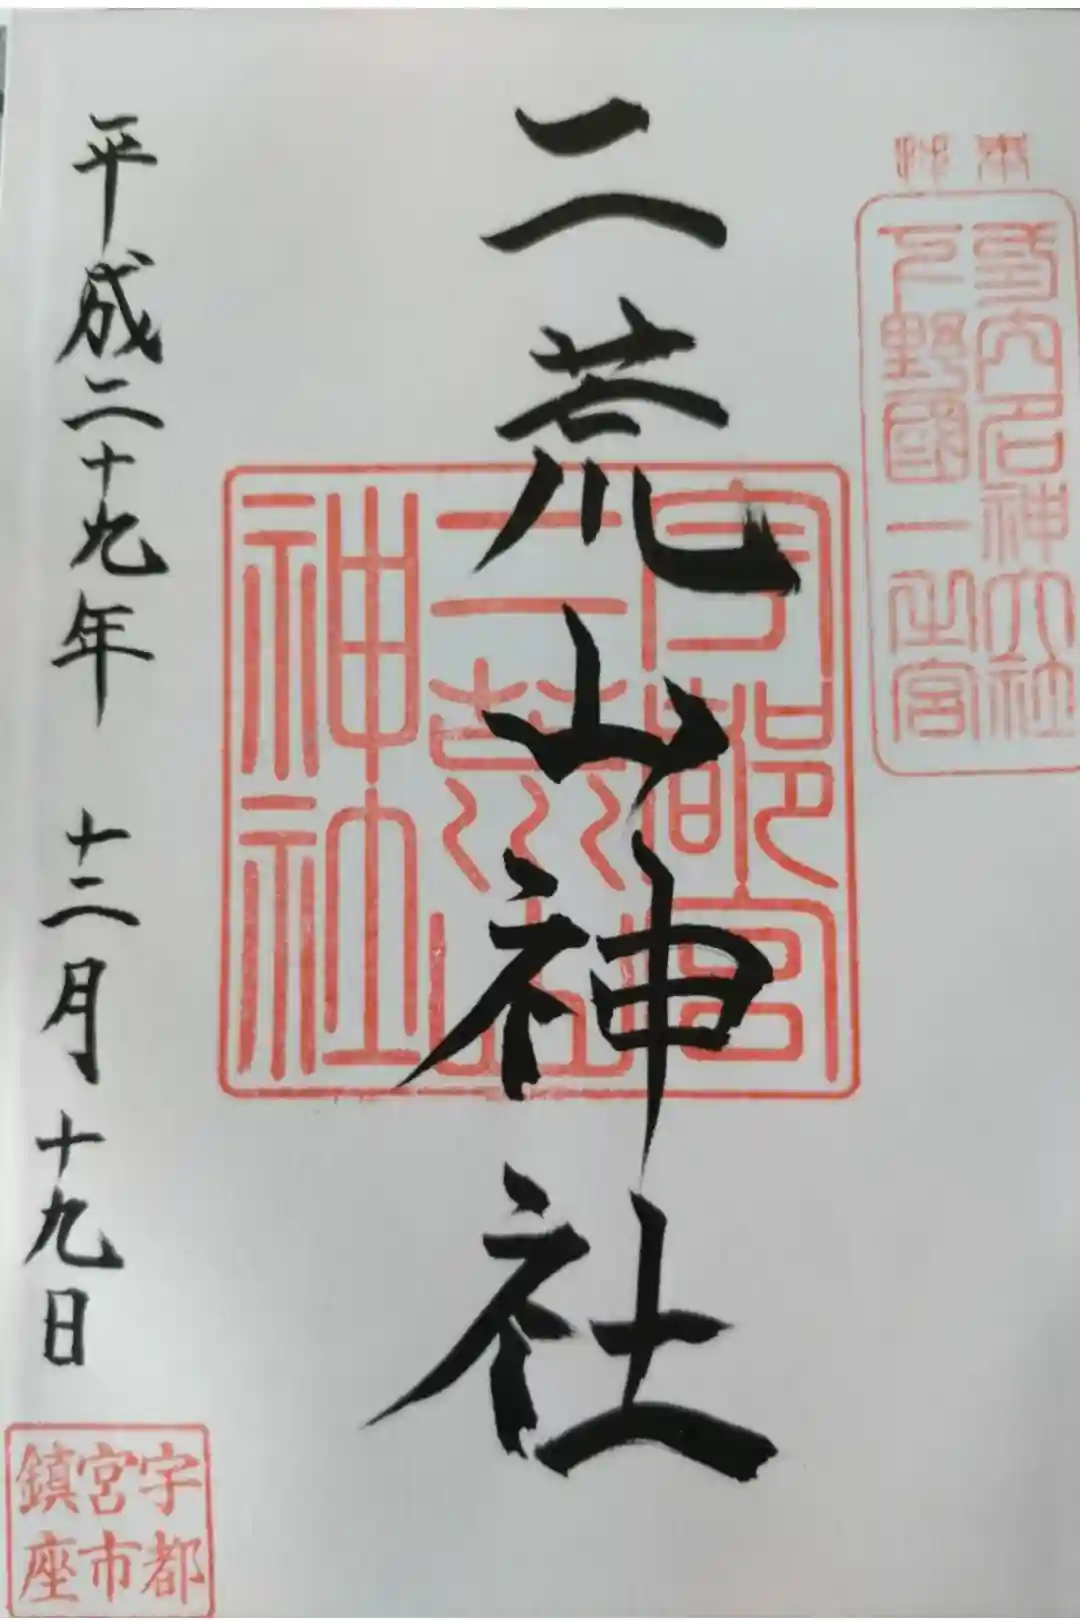 奉拝
式内名神大社
下野國一之宮
二荒山神社
宇都宮
二荒山
神社
平成二十九年 十二月十九日
宇都
宮市
鎮座